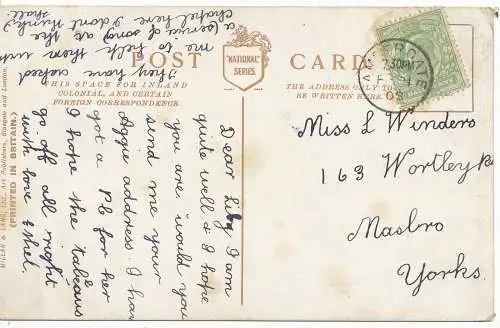 POST CARD
"NATIONAL" SERIES
THIS SPACE FOR INLAND
COLONIAL, AND CERTAIN
FOREIGN CORRESPONDENCE.
THE ADDRESS ONLY TO
BE WRITTEN HERE.
Miss L Winders
163 Wortley
Masbro
Yorks.
Dear Lily I am
quite well & I hope
you are. would you
send me your
Aggie address. I have
got a Pc for her
I hope the
go off all right
with love Ethel.
They have asked
me to help them with
a (service of song) at the
chapel here I dont think I
shall.
MILLAR & LANG, LTD., Art Publishers, Glasgow and London.
(PRINTED IN BRITAIN.)